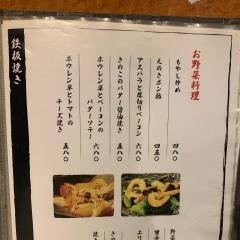 お野菜料理
もやし炒め 四八〇
えのきポン酢 四五〇
アスパラと厚切りベーコン 六八〇
きのこのバター醤油焼き 五八〇
ホウレン草とベーコンの
バターソテー 六八〇
ホウレン草とトマトの
チーズ焼き 五八〇
鉄板焼き
野菜
エリ
きの
焼き